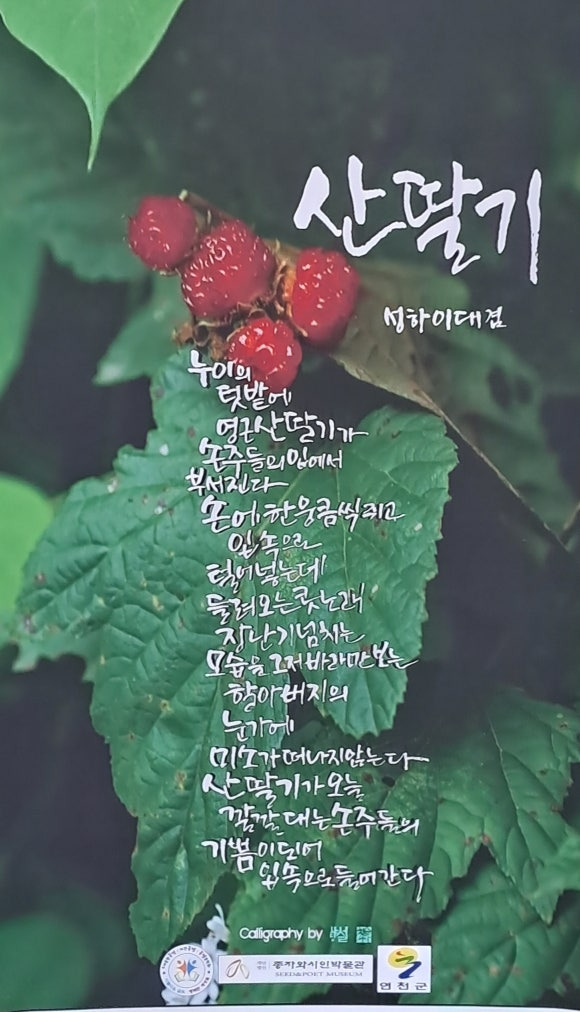 산딸기
성하 이대겸
누이의
텃밭에
영근 산딸기가
손주들의 입에서
부서진다
손에 한웅큼씩 쥐고
입 속으로
털어 넣는데
들려오는 콧노래
장난기 넘치는
모습을 그저 바라만 보는
할아버지의
눈가에
미소가 떠나지 않는다
산딸기가 오늘
깔깔 대는 손주들의
기쁨이 되어
입 속으로 들어간다
Calligraphy by
종자와시인박물관
SEED&POET MUSEUM
연천군